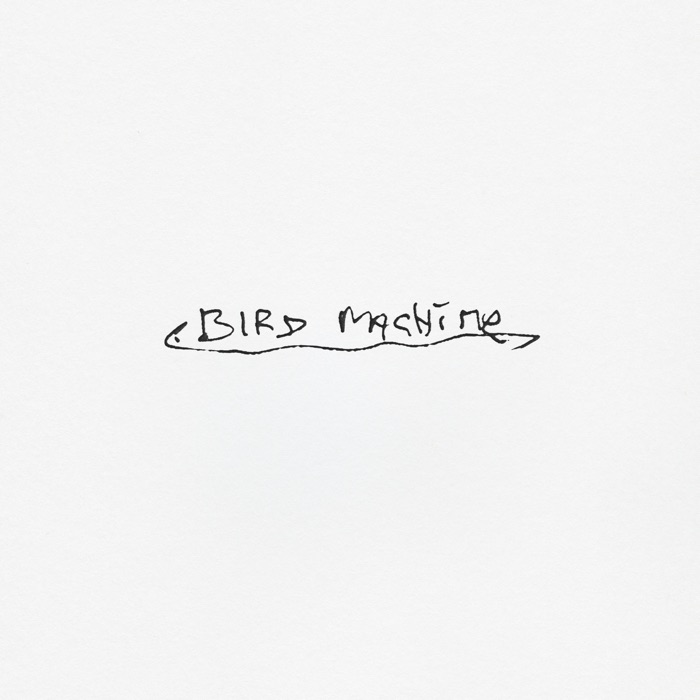 BIRD MacHiNe